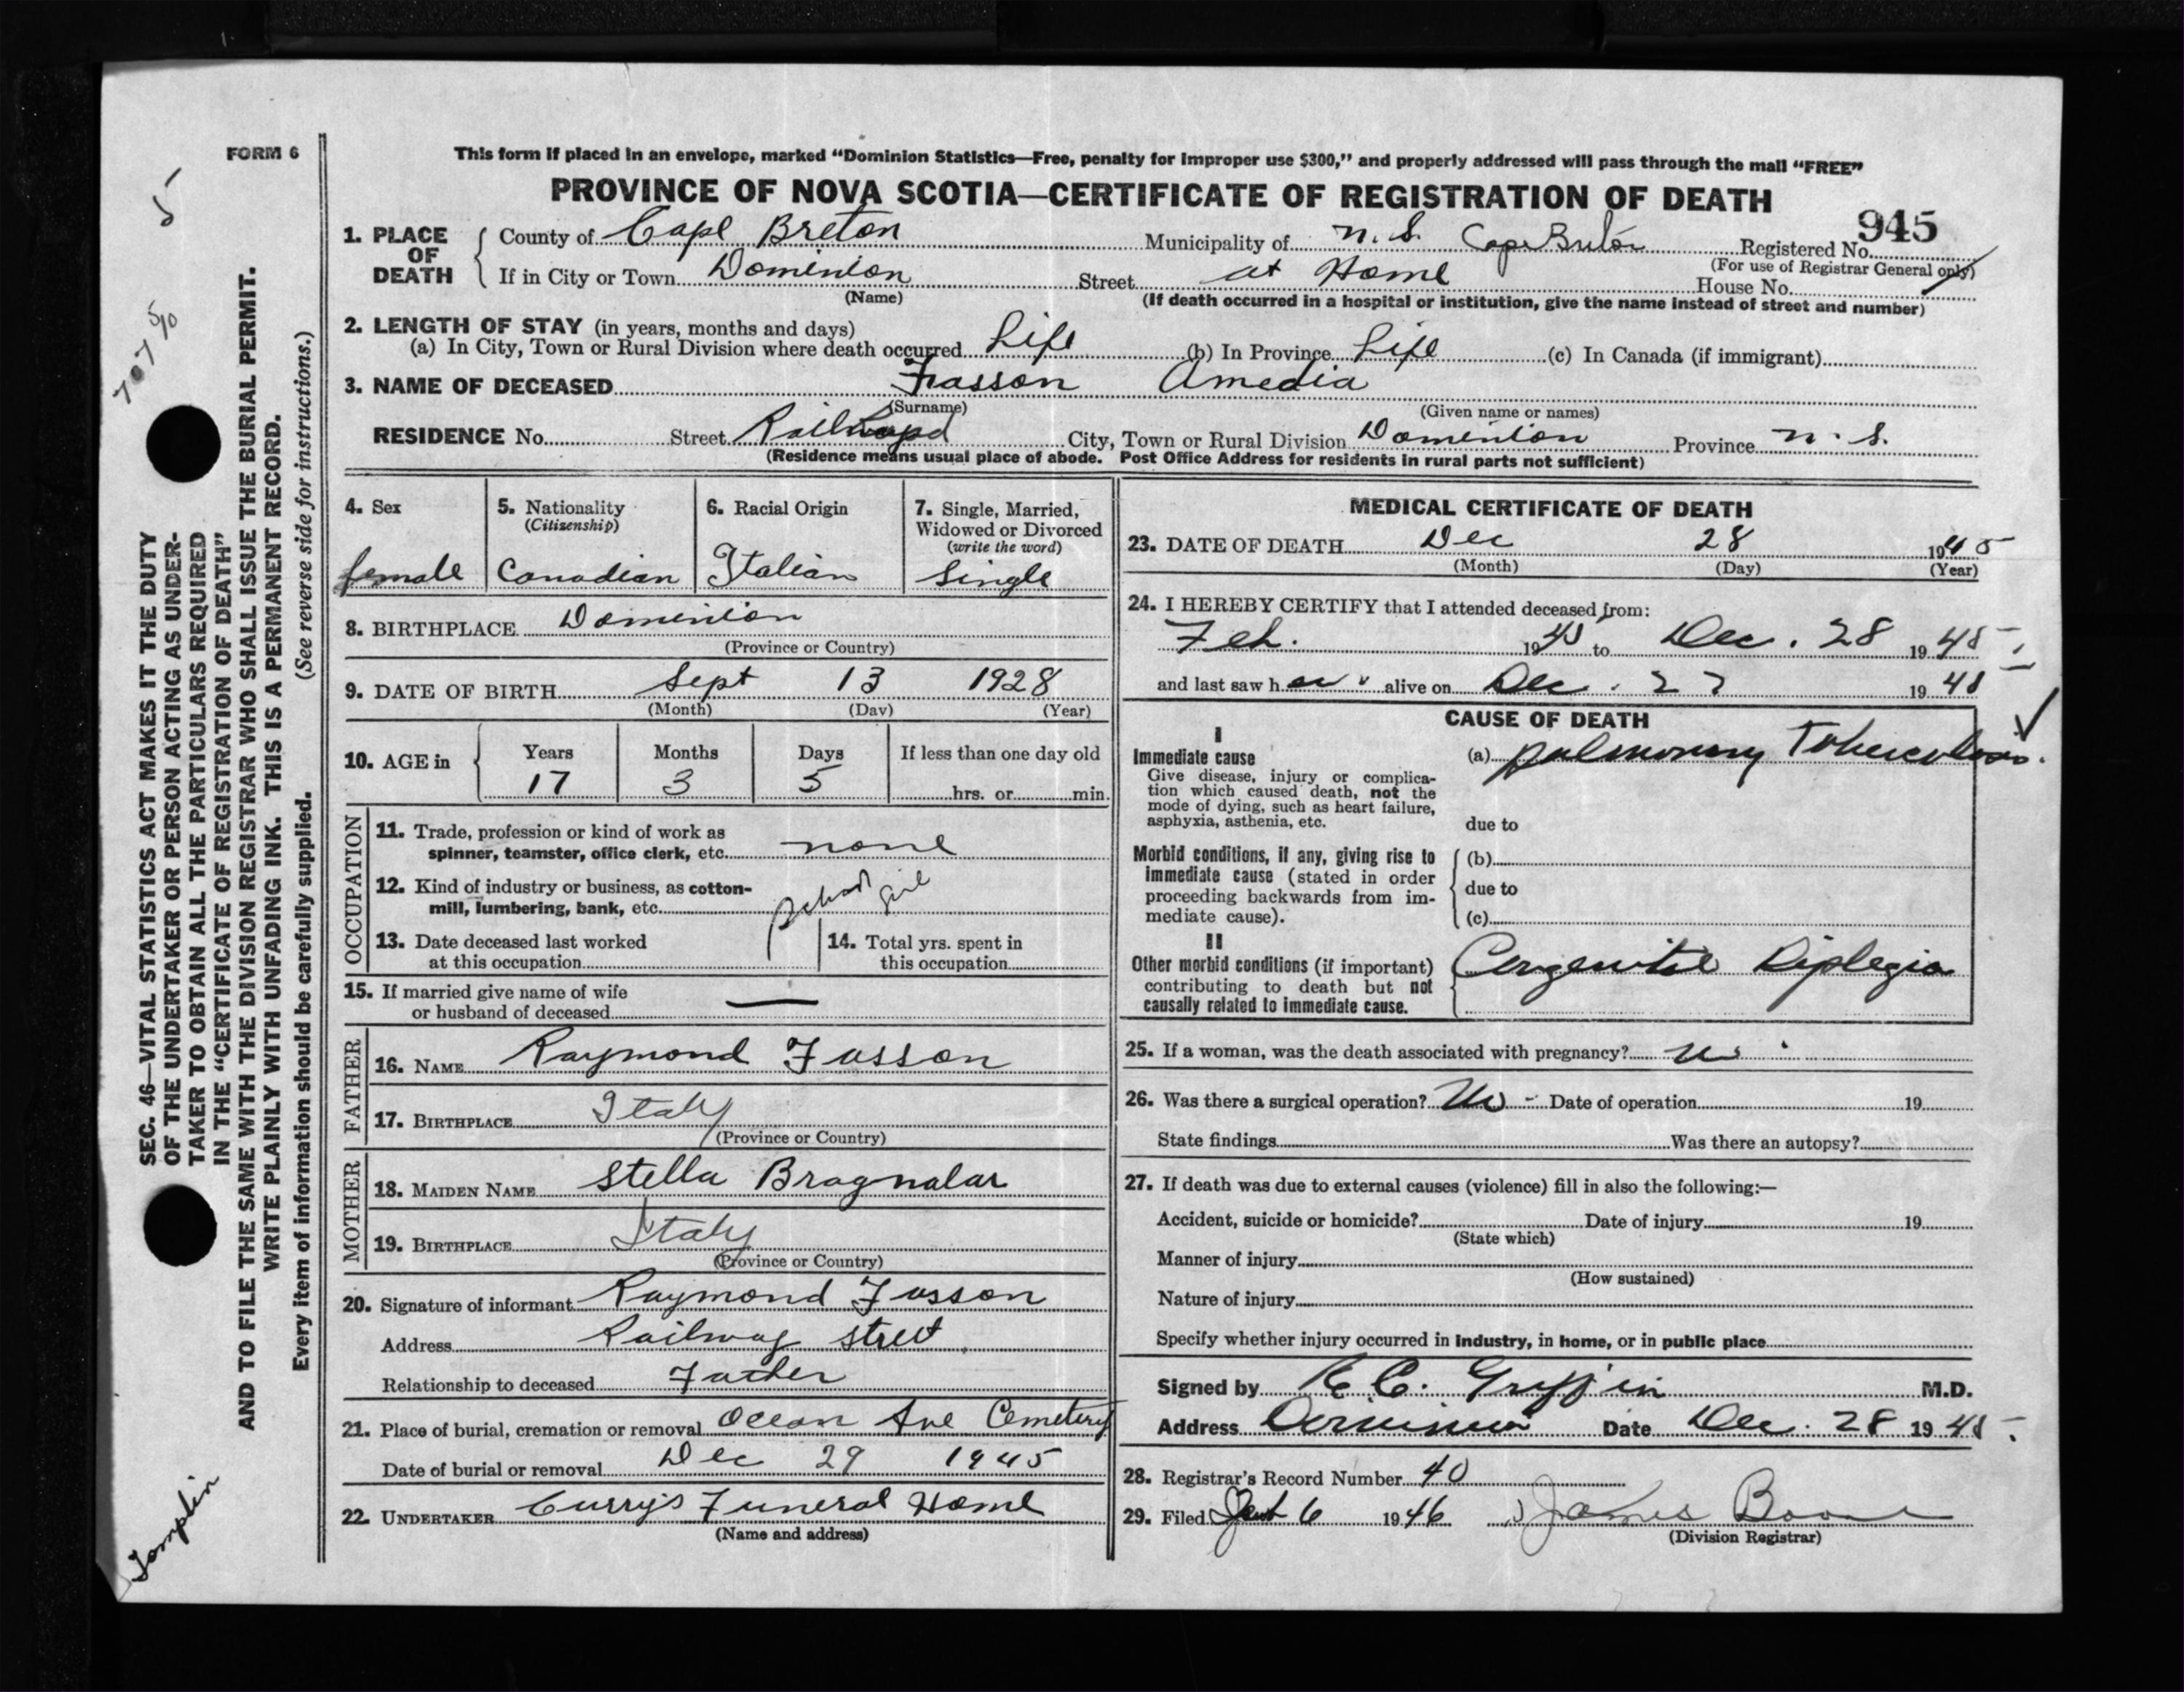 FORM 6
This form if placed in an envelope, marked "Dominion Statistics—Free, penalty for improper use $300," and properly addressed will pass through the mail "FREE"
PROVINCE OF NOVA SCOTIA—CERTIFICATE OF REGISTRATION OF DEATH
945
1. PLACE OF DEATH County of Cape Breton Municipality of N. S. Cape Breton Registered No.
(For use of Registrar General only)
If in City or Town Dominion Street at Home House No.
(Name) (If death occurred in a hospital or institution, give the name instead of street and number)
2. LENGTH OF STAY (in years, months and days)
(a) In City, Town or Rural Division where death occurred Life (b) In Province Life (c) In Canada (if immigrant)
3. NAME OF DECEASED Frasson Amedia
(Surname) (Given name or names)
RESIDENCE No. Street City, Town or Rural Division Dominion Province N. S.
(Residence means usual place of abode. Post Office Address for residents in rural parts not sufficient)
4. Sex 5. Nationality (Citizenship) 6. Racial Origin 7. Single, Married, Widowed or Divorced (write the word)
female Canadian Italian Single
8. BIRTHPLACE Dominion
(Province or Country)
9. DATE OF BIRTH Sept 13 1928
(Month) (Day) (Year)
10. AGE in Years Months Days If less than one day old
17 3 5 hrs. or min.
OCCUPATION
11. Trade, profession or kind of work as
spinner, teamster, office clerk, etc. none
12. Kind of industry or business, as cotton-
mill, lumbering, bank, etc. School girl
13. Date deceased last worked
at this occupation
14. Total yrs. spent in
this occupation
15. If married give name of wife
or husband of deceased —
FATHER
16. NAME Raymond Fasson
17. BIRTHPLACE Italy
(Province or Country)
MOTHER
18. MAIDEN NAME Stella Bragnalar
19. BIRTHPLACE Italy
(Province or Country)
20. Signature of informant Raymond Fasson
Address Railway street
Relationship to deceased Father
21. Place of burial, cremation or removal Ocean Ave Cemetery
Date of burial or removal Dec 29 1945
22. UNDERTAKER Curry's Funeral Home
(Name and address)
MEDICAL CERTIFICATE OF DEATH
23. DATE OF DEATH Dec 28 1945
(Month) (Day) (Year)
24. I HEREBY CERTIFY that I attended deceased from:
Feb. 19 to Dec. 28 1945
and last saw her alive on Dec. 27 1945
CAUSE OF DEATH
I
Immediate cause (a) pulmonary Tuberculosis.
Give disease, injury or complica-
tion which caused death, not the
mode of dying, such as heart failure,
asphyxia, asthenia, etc. due to
Morbid conditions, if any, giving rise to (b)
immediate cause (stated in order due to
proceeding backwards from im-
mediate cause). (c)
II
Other morbid conditions (if important) Congenital Diplegia
contributing to death but not
causally related to immediate cause.
25. If a woman, was the death associated with pregnancy? no
26. Was there a surgical operation? No - Date of operation 19
State findings Was there an autopsy?
27. If death was due to external causes (violence) fill in also the following:—
Accident, suicide or homicide? Date of injury 19
(State which)
Manner of injury
(How sustained)
Nature of injury
Specify whether injury occurred in industry, in home, or in public place
Signed by Griffin M.D.
Address Dominion Date Dec. 28 1945
28. Registrar's Record Number 40
29. Filed 6 1946 James
(Division Registrar)
SEC. 46—VITAL STATISTICS ACT MAKES IT THE DUTY
OF THE UNDERTAKER OR PERSON ACTING AS UNDER-
TAKER TO OBTAIN ALL THE PARTICULARS REQUIRED
IN THE "CERTIFICATE OF REGISTRATION OF DEATH"
AND TO FILE THE SAME WITH THE DIVISION REGISTRAR WHO SHALL ISSUE THE BURIAL PERMIT.
WRITE PLAINLY WITH UNFADING INK. THIS IS A PERMANENT RECORD.
Every item of information should be carefully supplied. (See reverse side for instructions.)
5